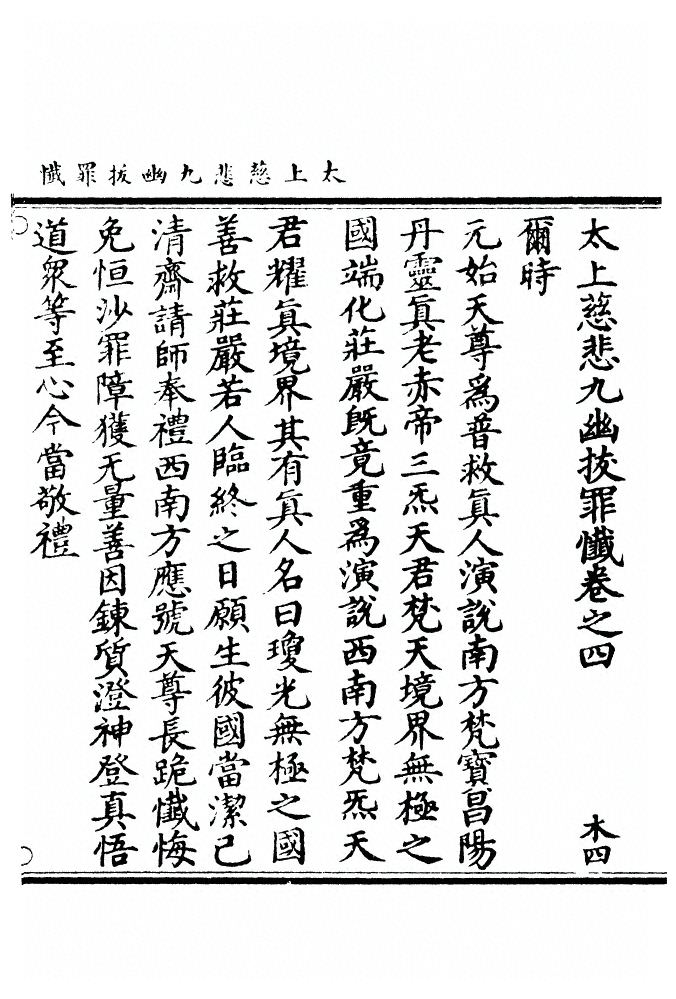 太上慈悲九幽拔罪懺
太上慈悲九幽拔罪懺卷之四　木四
爾時
元始天尊爲普救眞人演說南方梵寶昌陽
丹靈眞老赤帝三炁天君梵天境界無極之
國端化莊嚴旣竟重爲演說西南方梵炁天
君耀眞境界其有眞人名曰瓊光無極之國
善救莊嚴若人臨終之日願生彼國當潔己
清齋請師奉禮西南方應號天尊長跪懺悔
免恒沙罪障獲无量善因鍊質澄神登真悟
道衆等至心今當敬禮